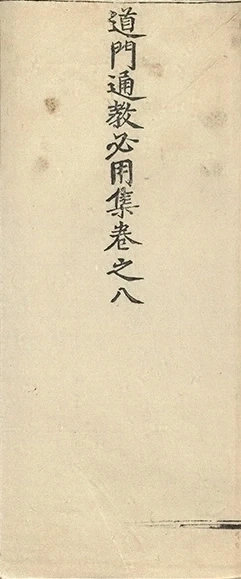 道門通教必用集卷之八